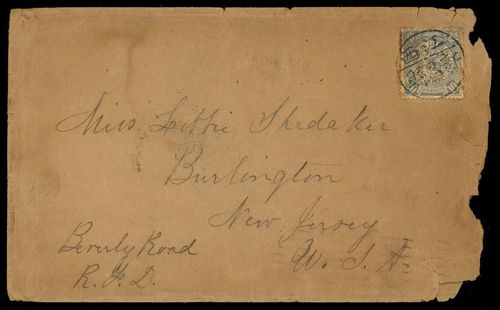 Miss Lottie Shedaker
Burlington
New Jersey
U. S. A.
Beverly Road
R. F. D.